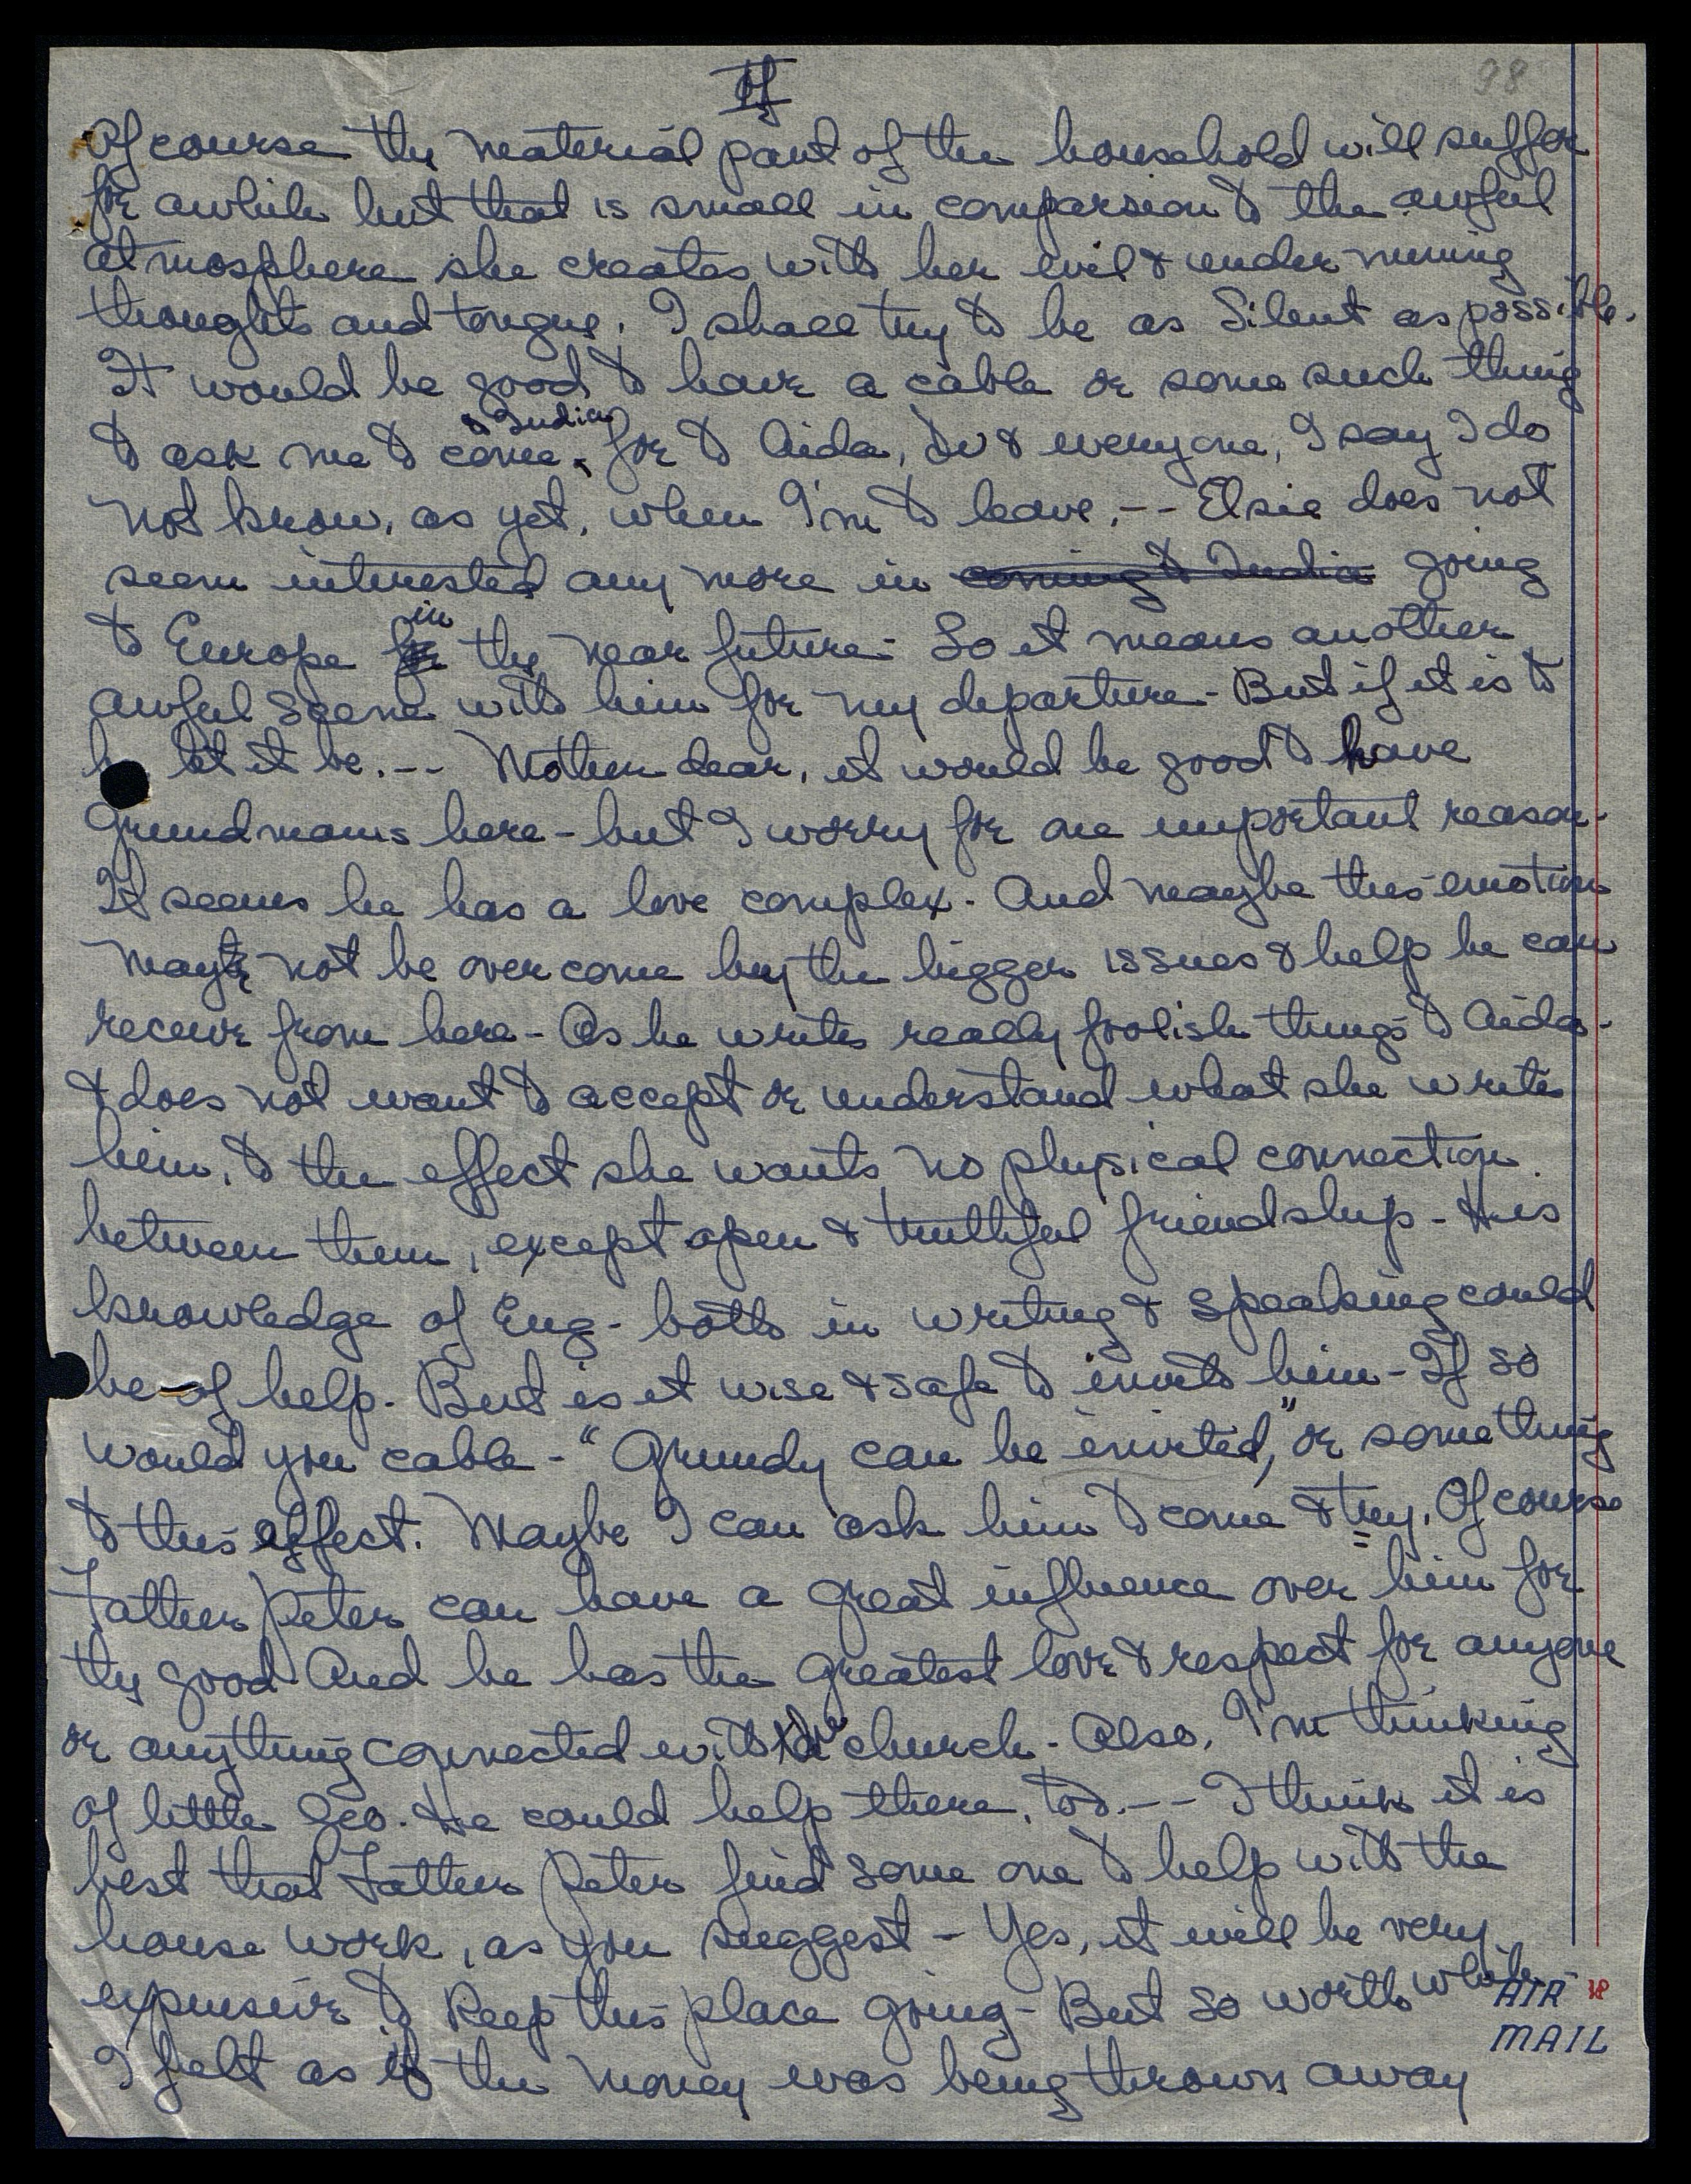 II
98
Of course the material part of the household will suffer
for awhile but that is small in comparsion to the awful
atmosphere she creates with her evil & under mining
thoughts and tongue. I shall try to be as silent as possible.
It would be good to have a cable or some such thing
to ask me to come to India, for to Aida, & everyone, I say I do
not know, as yet, when I'm to leave.-- Elsie does not
seem interested any more in coming to India going
to Europe in the near future- So it means another
awful scene with him for my departure- But if it is to
be let it be.-- Mother dear, it would be good to have
Grundmanis here - but I worry for one important reason-
It seems he has a love complex. And maybe this emotion
may not be over come by the bigger issues & help he can
receive from here - As he writes really foolish things to Aida-
& does not want to accept or understand what she writes
him, to the effect she wants no physical connection
between them, except open & truthful friendship - His
knowledge of Eng- both in writing & speaking could
be of help. But is it wise & safe to invite him - If so
would you cable - "Grundy can be invited," or something
to this effect. Maybe I can ask him to come & try. Of course
Father Peter can have a great influence over him for
the good And he has the greatest love & respect for anyone
or anything connected with the church - Also, I'm thinking
of little Geo. He could help there, too.-- I think it is
best that Father Peter find some one to help with the
house work, as you suggest - Yes, it will be very
expensive to keep this place going - But so worth while-
I felt as if the money was being thrown away
AIR
MAIL